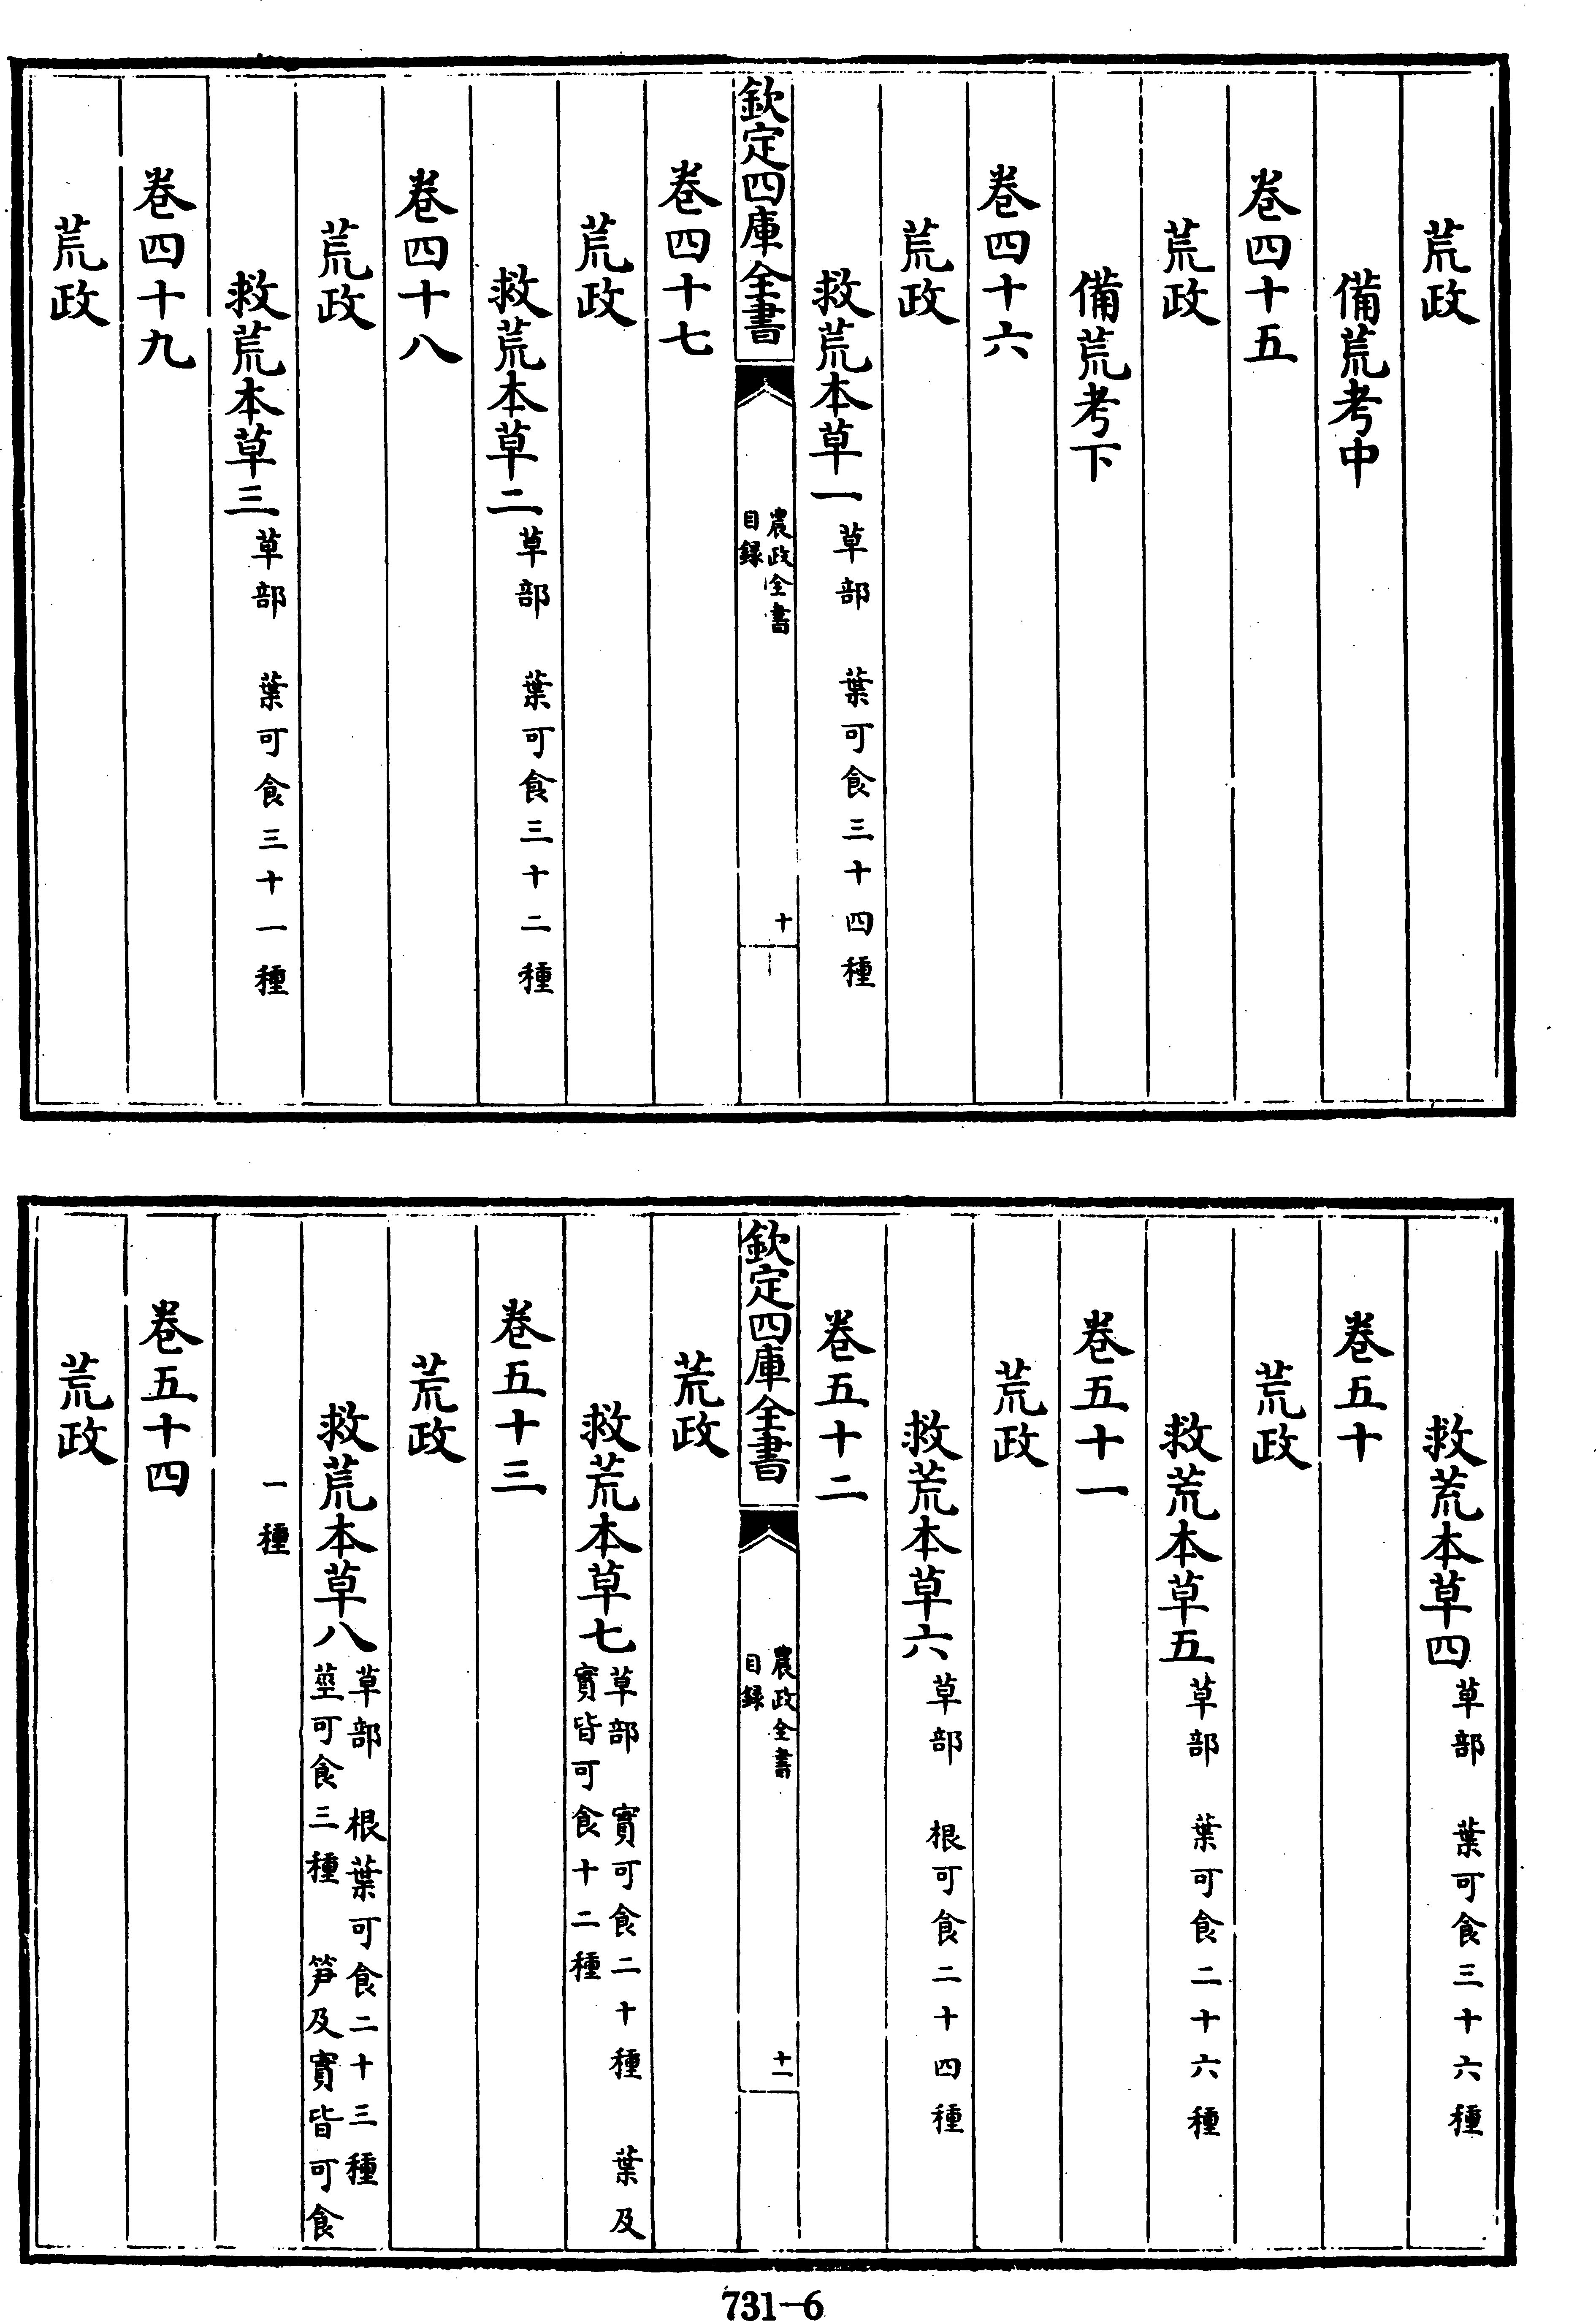 荒政
備荒考中
卷四十五
荒政
備荒考下
卷四十六
荒政
救荒本草一草部　葉可食三十四種
欽定四庫全書
農政全書
目録
十
卷四十七
荒政
救荒本草二草部　葉可食三十二種
卷四十八
荒政
救荒本草三草部　葉可食三十一種
卷四十九
荒政
救荒本草四草部　葉可食三十六種
卷五十
荒政
救荒本草五草部　葉可食二十六種
卷五十一
荒政
救荒本草六草部　根可食二十四種
卷五十二
欽定四庫全書
農政全書
目録
十一
荒政
救荒本草七草部　實可食二十種　葉及
實皆可食十二種
卷五十三
荒政
救荒本草八草部　根葉可食二十三種
莖可食三種　笋及實皆可食
一種
卷五十四
荒政
731-6